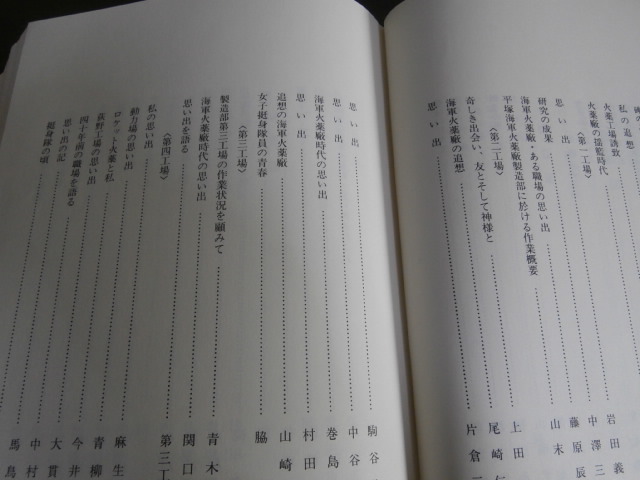 私の追想 岩田義
火薬工場誘致 中澤三
火薬廠の揺籃時代 藤原辰
〈第一工場〉
思い出 山末
研究の成果
海軍火薬廠・ある職場の思い出 上田
平塚海軍火薬廠製造部に於ける作業概要 尾崎
〈第二工場〉
奇しき出会い、友とそして神様と 片倉
海軍火薬廠の追想
思い出
思い出 駒谷
思い出 中谷
思い出 巻島
海軍火薬廠時代の思い出 村田
追想の海軍火薬廠 山崎
女子挺身隊員の青春 脇
〈第三工場〉
製造部第三工場の作業状況を顧みて 青木
海軍火薬廠時代の思い出 関口
思い出を語る 第三工
〈第四工場〉
私の思い出 麻生
動力場の思い出 青柳
ロケット火薬と私 今井
荻野工場の思い出 大貫
四十年前の職場を語る 中村
思い出の記 馬鳥
挺身隊の頃